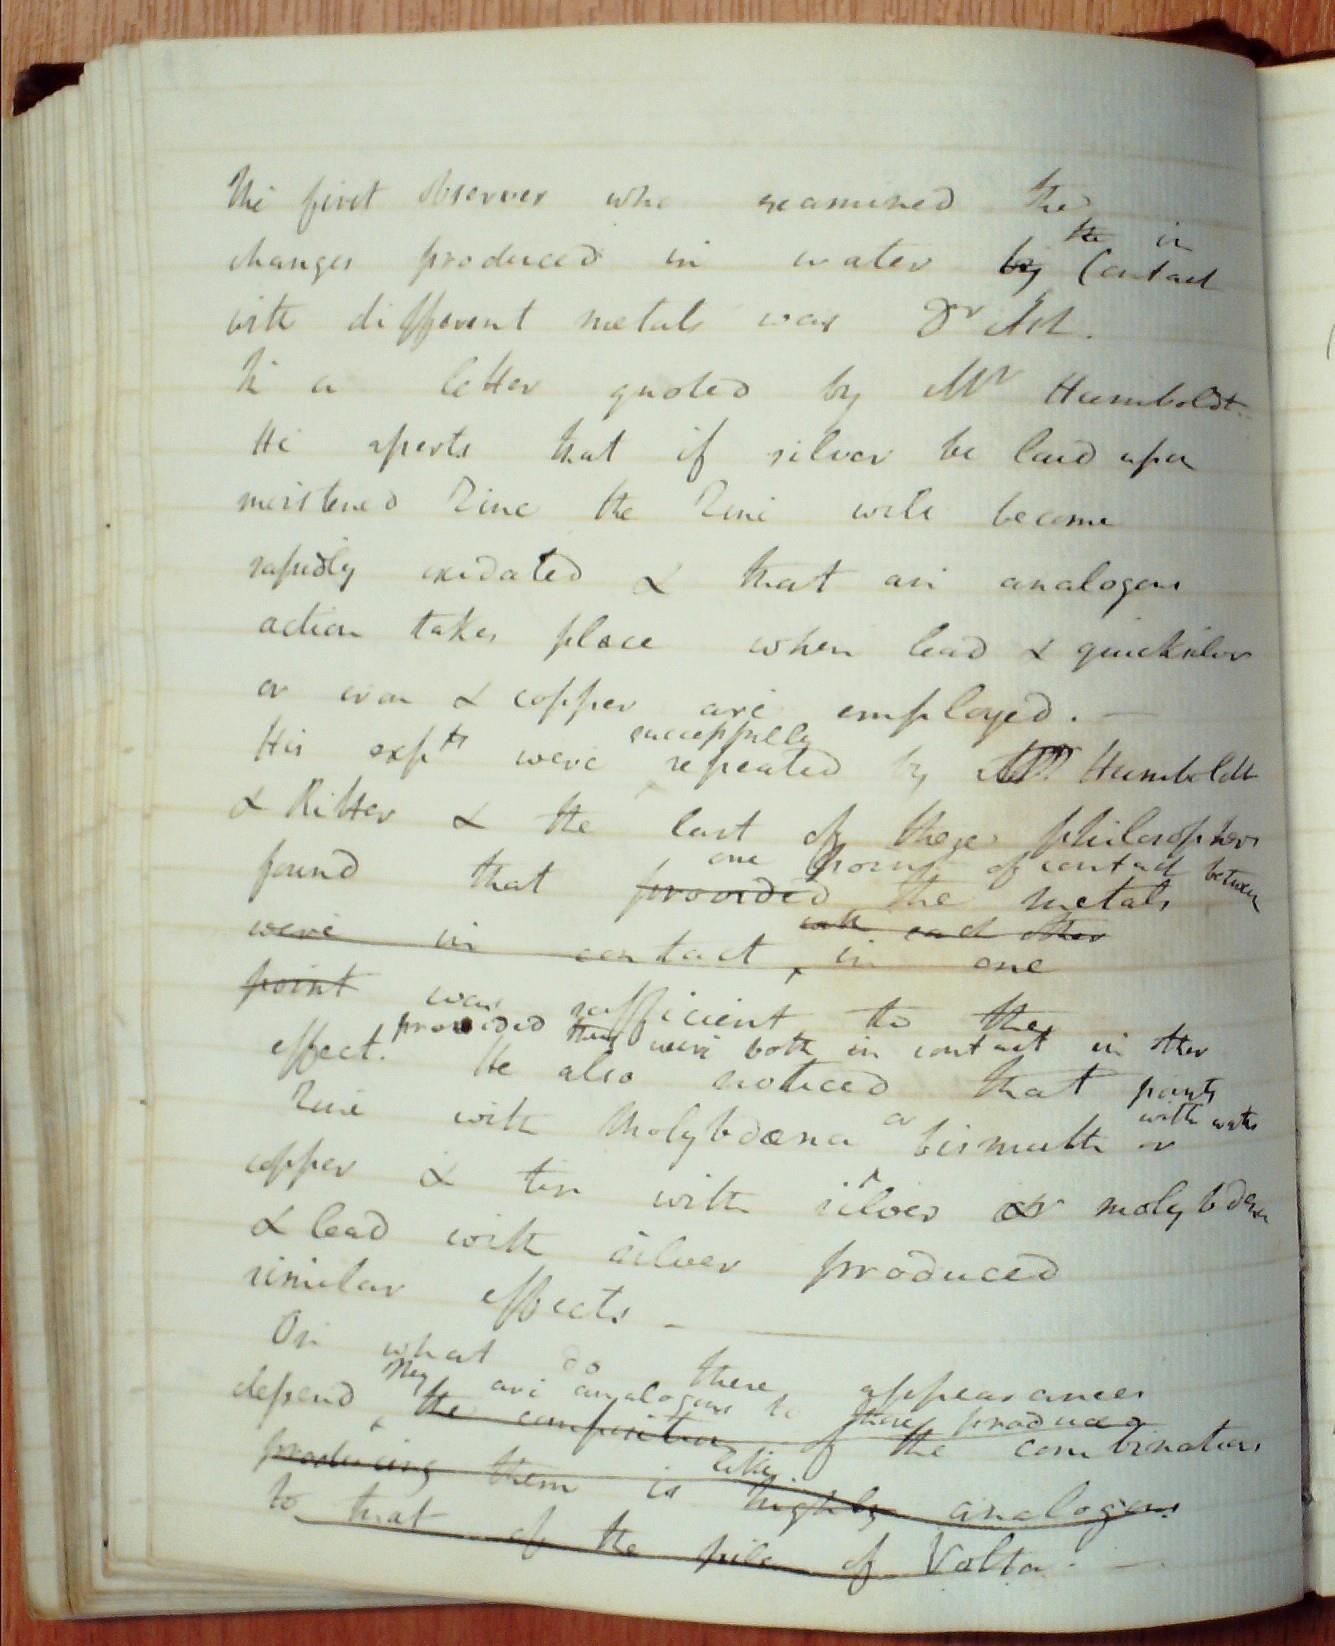 The first observer who examined the
the in
changes produced in water by Contact
with different metals was Dr Ash.
In a letter quoted by Mr Humboldt.
He asserts that if silver be laid upon
moistened Zinc the Zinc will become
rapidly oxidated & that an analogous
action takes place when lead & quicksilver
or iron & copper are employed. —
successfully
His expts were repeated by Mr Humboldt
& Ritter & the last of these philosophers
one point of contact between
found that provided the metals
with each other
were in contact in one
point was sufficient to the
provided they were both in contact in other
effect. He also noticed that points
with water
Zinc with Molybdæna or bismuth or
copper & tin with silver or molybdæna
& lead with silver produced
similar effects —
On what do these appearances
They are analogous to those produced
depend the composition of the combinations
like
producing them is highly analogous
to that of the pile of Volta. —